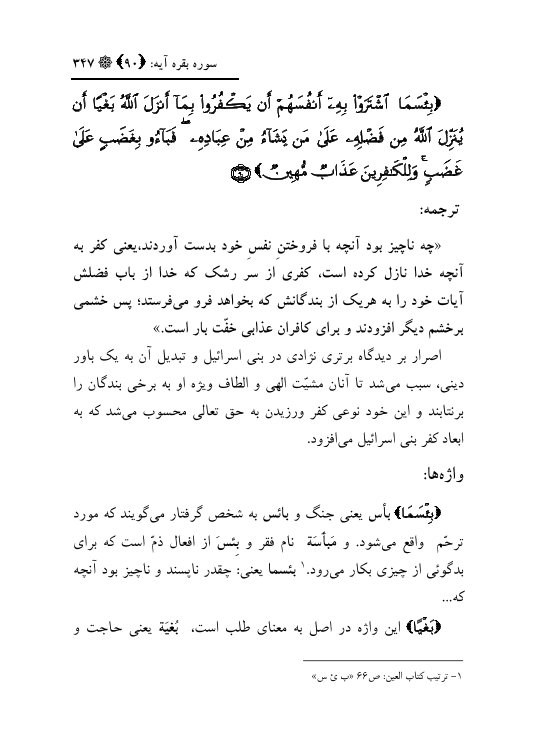 سوره بقره آیه: ﴿۹۰﴾ ۳۴۷
﴿بِئۡسَمَا ٱشۡتَرَوۡاْ بِهِۦٓ أَنفُسَهُمۡ أَن يَكۡفُرُواْ بِمَآ أَنزَلَ ٱللَّهُ بَغۡيًا أَن
يُنَزِّلَ ٱللَّهُ مِن فَضۡلِهِۦ عَلَىٰ مَن يَشَآءُ مِنۡ عِبَادِهِۦۖ فَبَآءُو بِغَضَبٍ عَلَىٰ
غَضَبٖۚ وَلِلۡكَٰفِرِينَ عَذَابٞ مُّهِينٞ﴾ ۹۰
ترجمه:
«چه ناچیز بود آنچه با فروختنِ نفسِ خود بدست آوردند،یعنی کفر به
آنچه خدا نازل کرده است، کفری از سر رشک که خدا از باب فضلش
آیات خود را به هریک از بندگانش که بخواهد فرو می‌فرستد؛ پس خشمی
برخشم دیگر افزودند و برای کافران عذابی خفّت بار است.»
اصرار بر دیدگاه برتری نژادی در بنی اسرائیل و تبدیل آن به یک باور
دینی، سبب می‌شد تا آنان مشیّت الهی و الطاف ویژه او به برخی بندگان را
برنتابند و این خود نوعی کفر ورزیدن به حق تعالی محسوب می‌شد که به
ابعاد کفر بنی اسرائیل می‌افزود.
واژه‌ها:
﴿بِئۡسَمَا﴾ بأس یعنی جنگ و بائس به شخص گرفتار می‌گویند که مورد
ترحّم واقع می‌شود. و مَبأسَة نام فقر و بِئسَ از افعال ذمّ است که برای
بدگوئی از چیزی بکار می‌رود.۱ بئسما یعنی: چقدر ناپسند و ناچیز بود آنچه
که...
﴿بَغۡيًا﴾ این واژه در اصل به معنای طلب است، بُغیَة یعنی حاجت و
۱- ترتیب کتاب العین: ص۶۶ «ب ئ س»